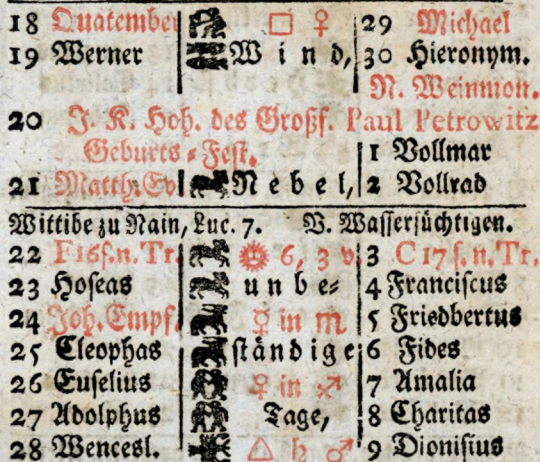 18 Quatember □ ♀ 29 Michael
19 Werner Wind, 30 Hieronym.
N. Weinmon.
20 J. K. Hoh. des Großf. Paul Petrowitz
Geburts-Fest. 1 Vollmar
21 Matth. Ev. Nebel, 2 Vollrad
Wittibe zu Nain, Luc. 7. V. Wassersüchtigen.
22 F 16 s. n. Tr. 6, 3 v. 3 C 17 s. n. Tr.
23 Hoseas unbe- 4 Franciscus
24 Joh. Empf. ☿ in ♏ 5 Friedbertus
25 Cleophas ständige 6 Fides
26 Euselius ♀ in ♐ 7 Amalia
27 Adolphus Tage, 8 Charitas
28 Wencesl. △ ♄ ♂ 9 Dionisius